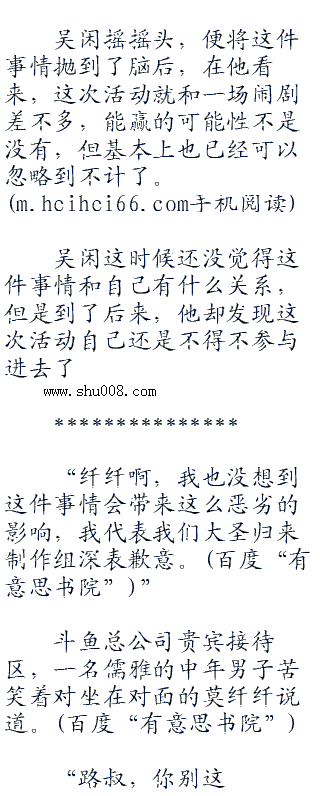 吴闲摇摇头，便将这件
事情抛到了脑后，在他看
来，这次活动就和一场闹剧
差不多，能赢的可能性不是
没有，但基本上也已经可以
忽略到不计了。
(m.hcihci66.com手机阅读)
吴闲这时候还没觉得这
件事情和自己有什么关系，
但是到了后来，他却发现这
次活动自己还是不得不参与
进去了
www.shu008.com
***************
“纤纤啊，我也没想到
这件事情会带来这么恶劣的
影响，我代表我们大圣归来
制作组深表歉意。(百度“有
意思书院”)”
斗鱼总公司贵宾接待
区，一名儒雅的中年男子苦
笑着对坐在对面的莫纤纤说
道。(百度“有意思书院”)
“路叔，你别这